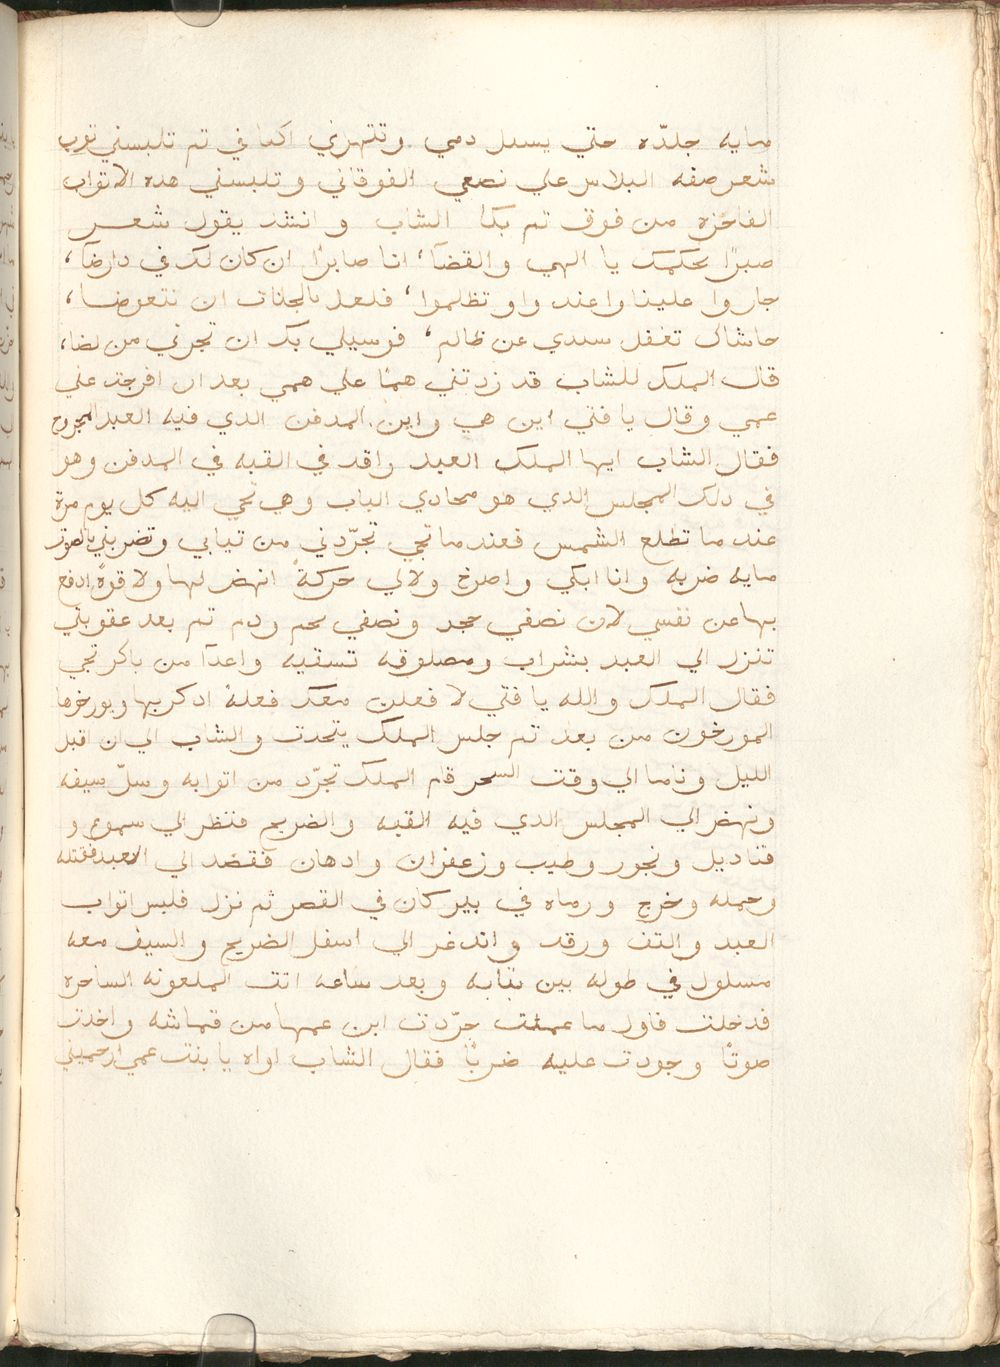 مايه جلدّه حتي يسيل دمي وتتهرني اكتافي تم تلبسني توب
شعر صفه البلاس علي نصفي الفوقاني وتلبسني هده الاتواب
الفاخره من فوق تم بكا الشاب وانشد يقول شعر
صبرًا لحكمك يا الهي والقضآ، انا صابرًا ان كان لك في دا رضآ،
جاروا علينا واعتدوا وتظلموا، فلعل بالجنات ان نتعوضا،
حاشاك تغفل سيدي عن ظالم، فوسيلي بك ان تجرني من لضا،
قال الملك للشاب قد زدتني همًا علي همي بعد ان افرجت عني
غمي وقال يا فتي اين هي واين المدفن الدي فيه العبد المجروح
فقال الشاب ايها الملك العبد راقد في القبه في المدفن وهو
في دلك المجلس الدي هو محادي الباب وهي تجي اليه كل يوم مرة
عند ما تطلع الشمس فعند ما تجي تجرّدني من تيابي وتضربني بالصوت
مايه ضربه وانا ابكي واصرخ ولا لي حركةً انهض لها ولا قوةً ادفع
بها عن نفسي لان نصفي حجر ونصفي لحم ودم تم بعد عقوبتي
تنزل الي العبد بشراب ومصلوقه تسقيه واغدآ من باكر تجي
فقال الملك والله يا فتي لا فعلن معك فعلهً ادكر بها ويورخوها
المورخون من بعد تم جلس الملك يتحدت والشاب الي ان اقبل
الليل وناما الي وقت السحر قام الملك تجرّد من اتوابه وسلّ سيفه
ونهض الي المجلس الدي فيه القبه والضريح فنظر الي سموع و
قناديل وبخور وطيب وزعفران وادهان فقصد الي العبد فقتله
وحمله وخرج ورماه في بير كان في القصر ثم نزل فلبس اتواب
العبد والتف ورقد واندغر الي اسفل الضريح والسيف معه
مسلول في طوله بين تيابه وبعد ساعه اتت الملعونه الساحره
فدخلت فاول ما عملت جرّدت ابن عمها من قماشه واخدت
صوتًا وجودت عليه ضربًا فقال الشاب اواه يا بنت عمي ارحميني